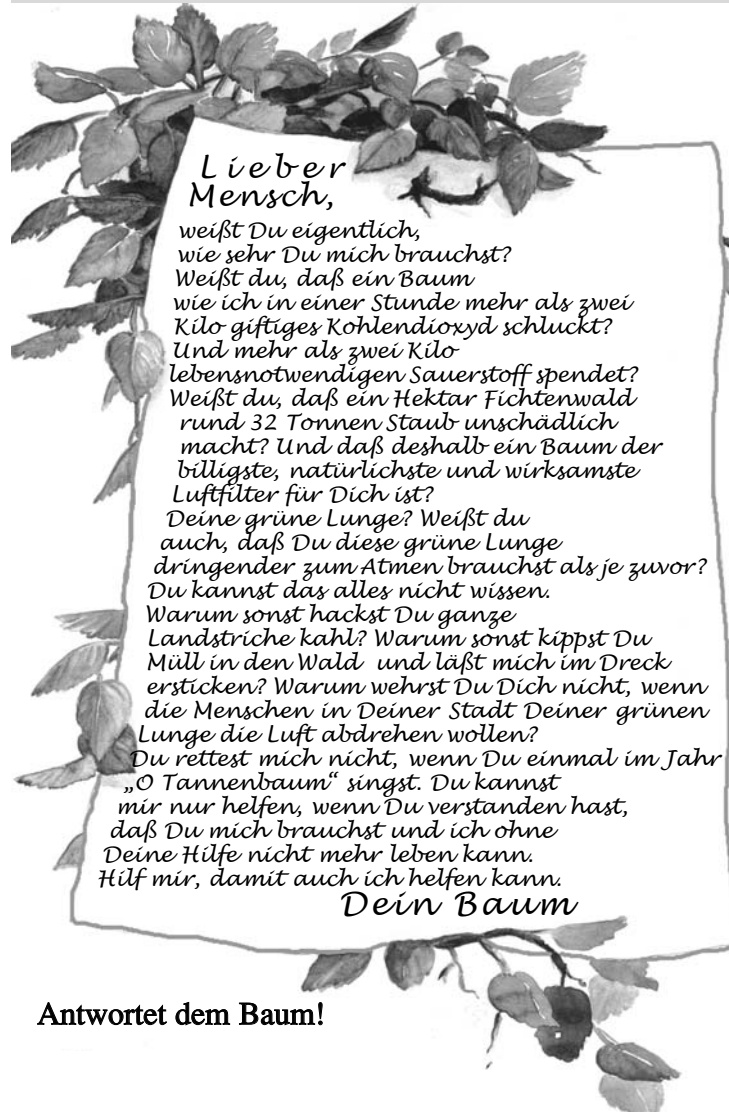 Lieber
Mensch,
weißt Du eigentlich,
wie sehr Du mich brauchst?
Weißt du, daß ein Baum
wie ich in einer Stunde mehr als zwei
Kilo giftiges Kohlendioxyd schluckt?
Und mehr als zwei Kilo
lebensnotwendigen Sauerstoff spendet?
Weißt du, daß ein Hektar Fichtenwald
rund 32 Tonnen Staub unschädlich
macht? Und daß deshalb ein Baum der
billigste, natürlichste und wirksamste
Luftfilter für Dich ist?
Deine grüne Lunge? Weißt du
auch, daß Du diese grüne Lunge
dringender zum Atmen brauchst als je zuvor?
Du kannst das alles nicht wissen.
Warum sonst hackst Du ganze
Landstriche kahl? Warum sonst kippst Du
Müll in den Wald und läßt mich im Dreck
ersticken? Warum wehrst Du Dich nicht, wenn
die Menschen in Deiner Stadt Deiner grünen
Lunge die Luft abdrehen wollen?
Du rettest mich nicht, wenn Du einmal im Jahr
„O Tannenbaum“ singst. Du kannst
mir nur helfen, wenn Du verstanden hast,
daß Du mich brauchst und ich ohne
Deine Hilfe nicht mehr leben kann.
Hilf mir, damit auch ich helfen kann.
Dein Baum
Antwortet dem Baum!